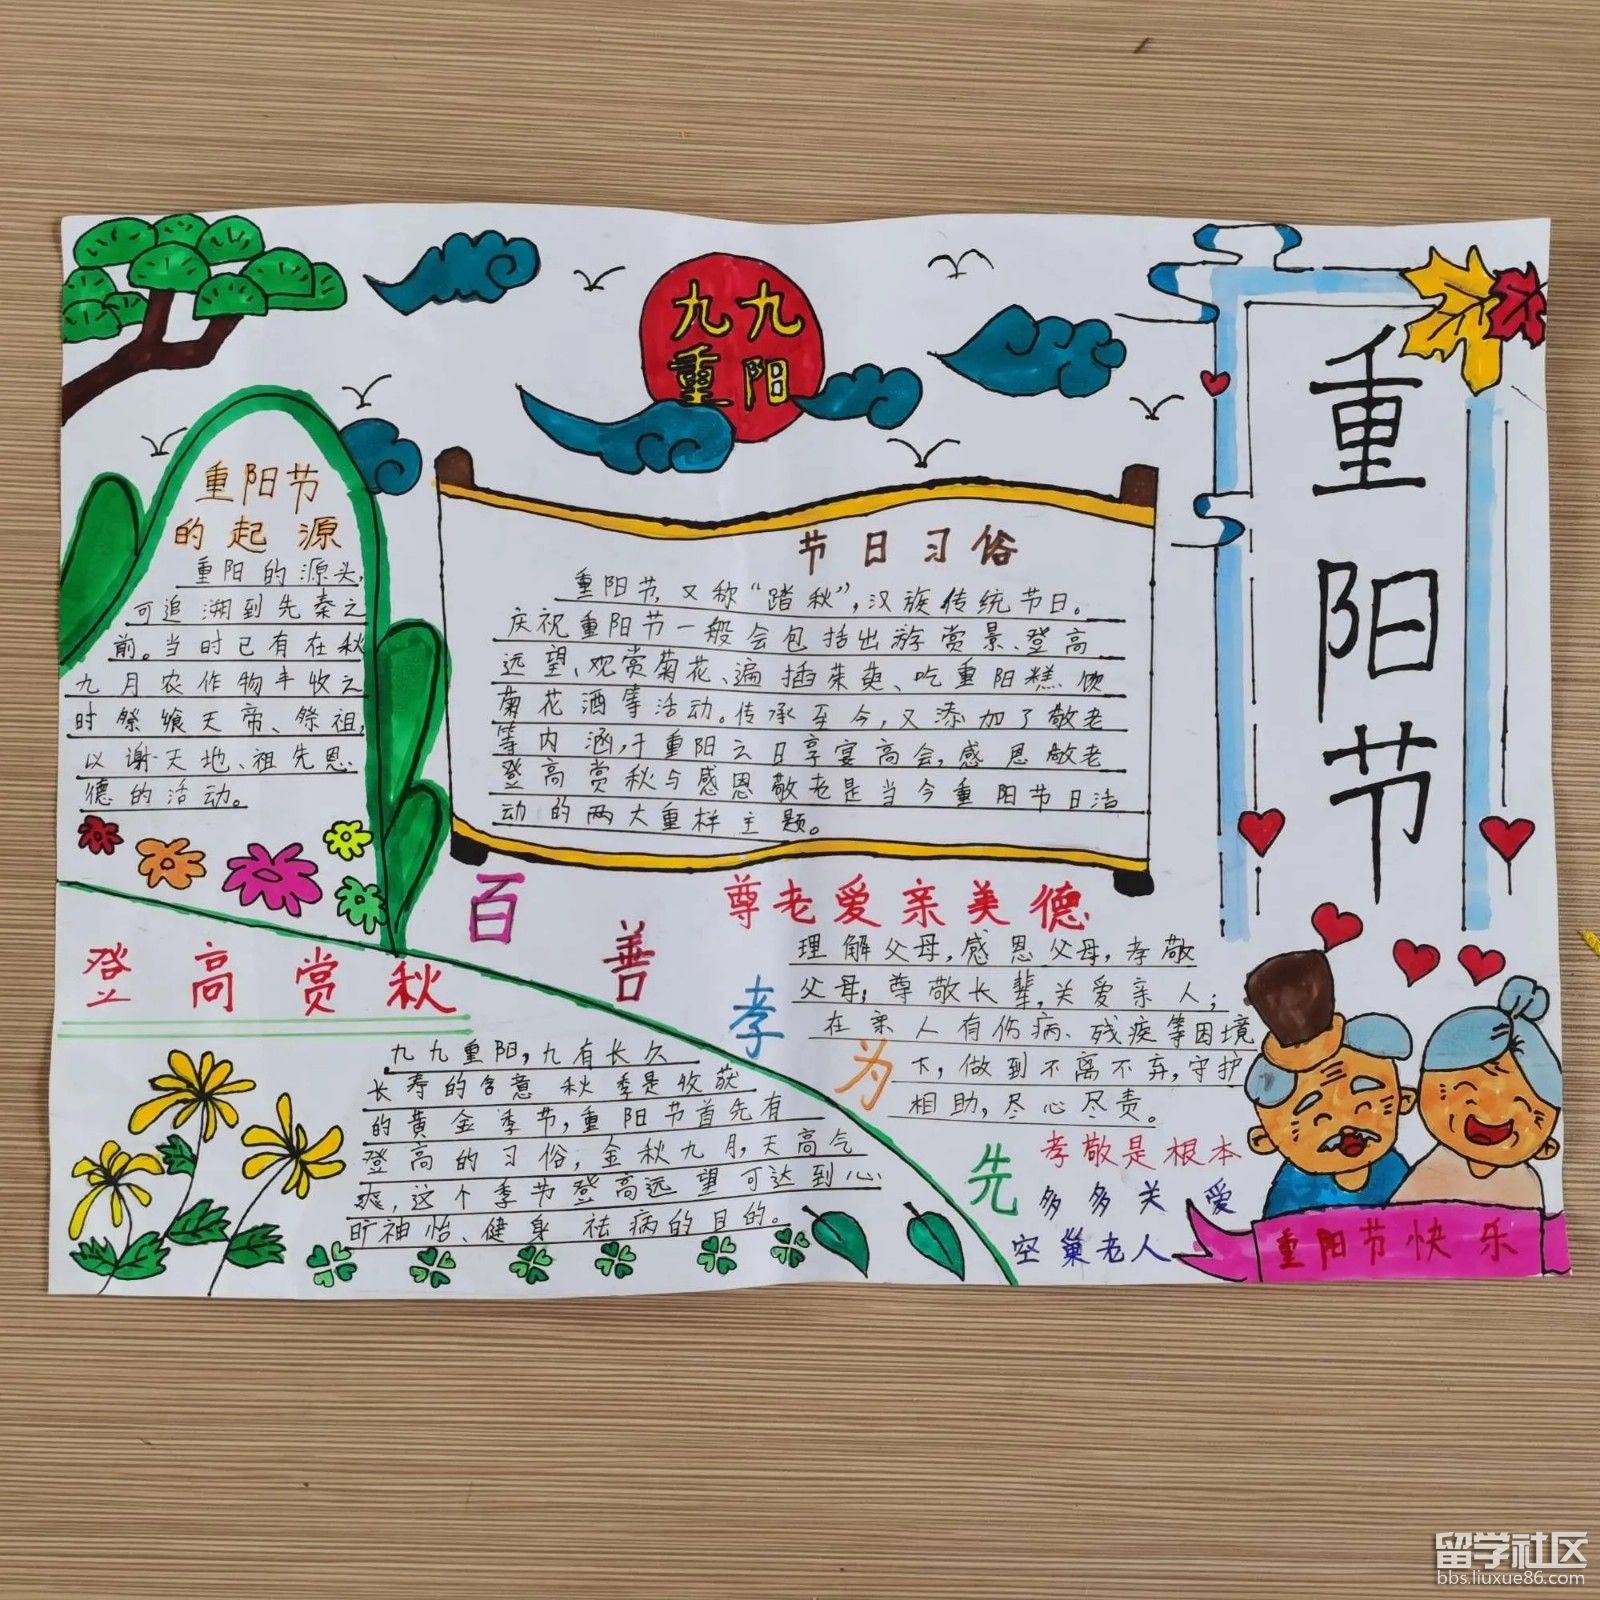 九九
重阳
重阳节
重阳节
的起源
重阳的源头,
可追溯到先秦之
前。当时已有在秋
九月农作物丰收之
时祭飨天帝、祭祖,
以谢天地、祖先恩
德的活动。
节日习俗
重阳节,又称“踏秋”,汉族传统节日。
庆祝重阳节一般会包括出游赏景、登高
远望、观赏菊花、遍插茱萸、吃重阳糕、饮
菊花酒等活动。传承至今,又添加了敬老
等内涵,于重阳之日享宴高会,感恩敬老
登高赏秋与感恩敬老是当今重阳节日活
动的两大重样主题。
百善孝为先
尊老爱亲美德
理解父母,感恩父母,孝敬
父母;尊敬长辈,关爱亲人;
在亲人有伤病、残疾等困境
下,做到不离不弃,守护
相助,尽心尽责。
孝敬是根本
多多关爱
空巢老人
登高赏秋
九九重阳,九有长久
长寿的含意 秋季是收获
的黄金季节,重阳节首先有
登高的习俗,金秋九月,天高气
爽,这个季节登高远望可达到心
旷神怡、健身祛病的目的。
重阳节快乐
留学社区
bbs.liuxue86.com